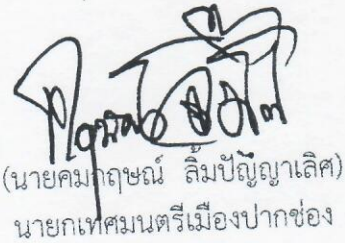 (นายคมกฤษณ์ ลิ้มปัญญาเลิศ)
นายกเทศมนตรีเมืองปากช่อง